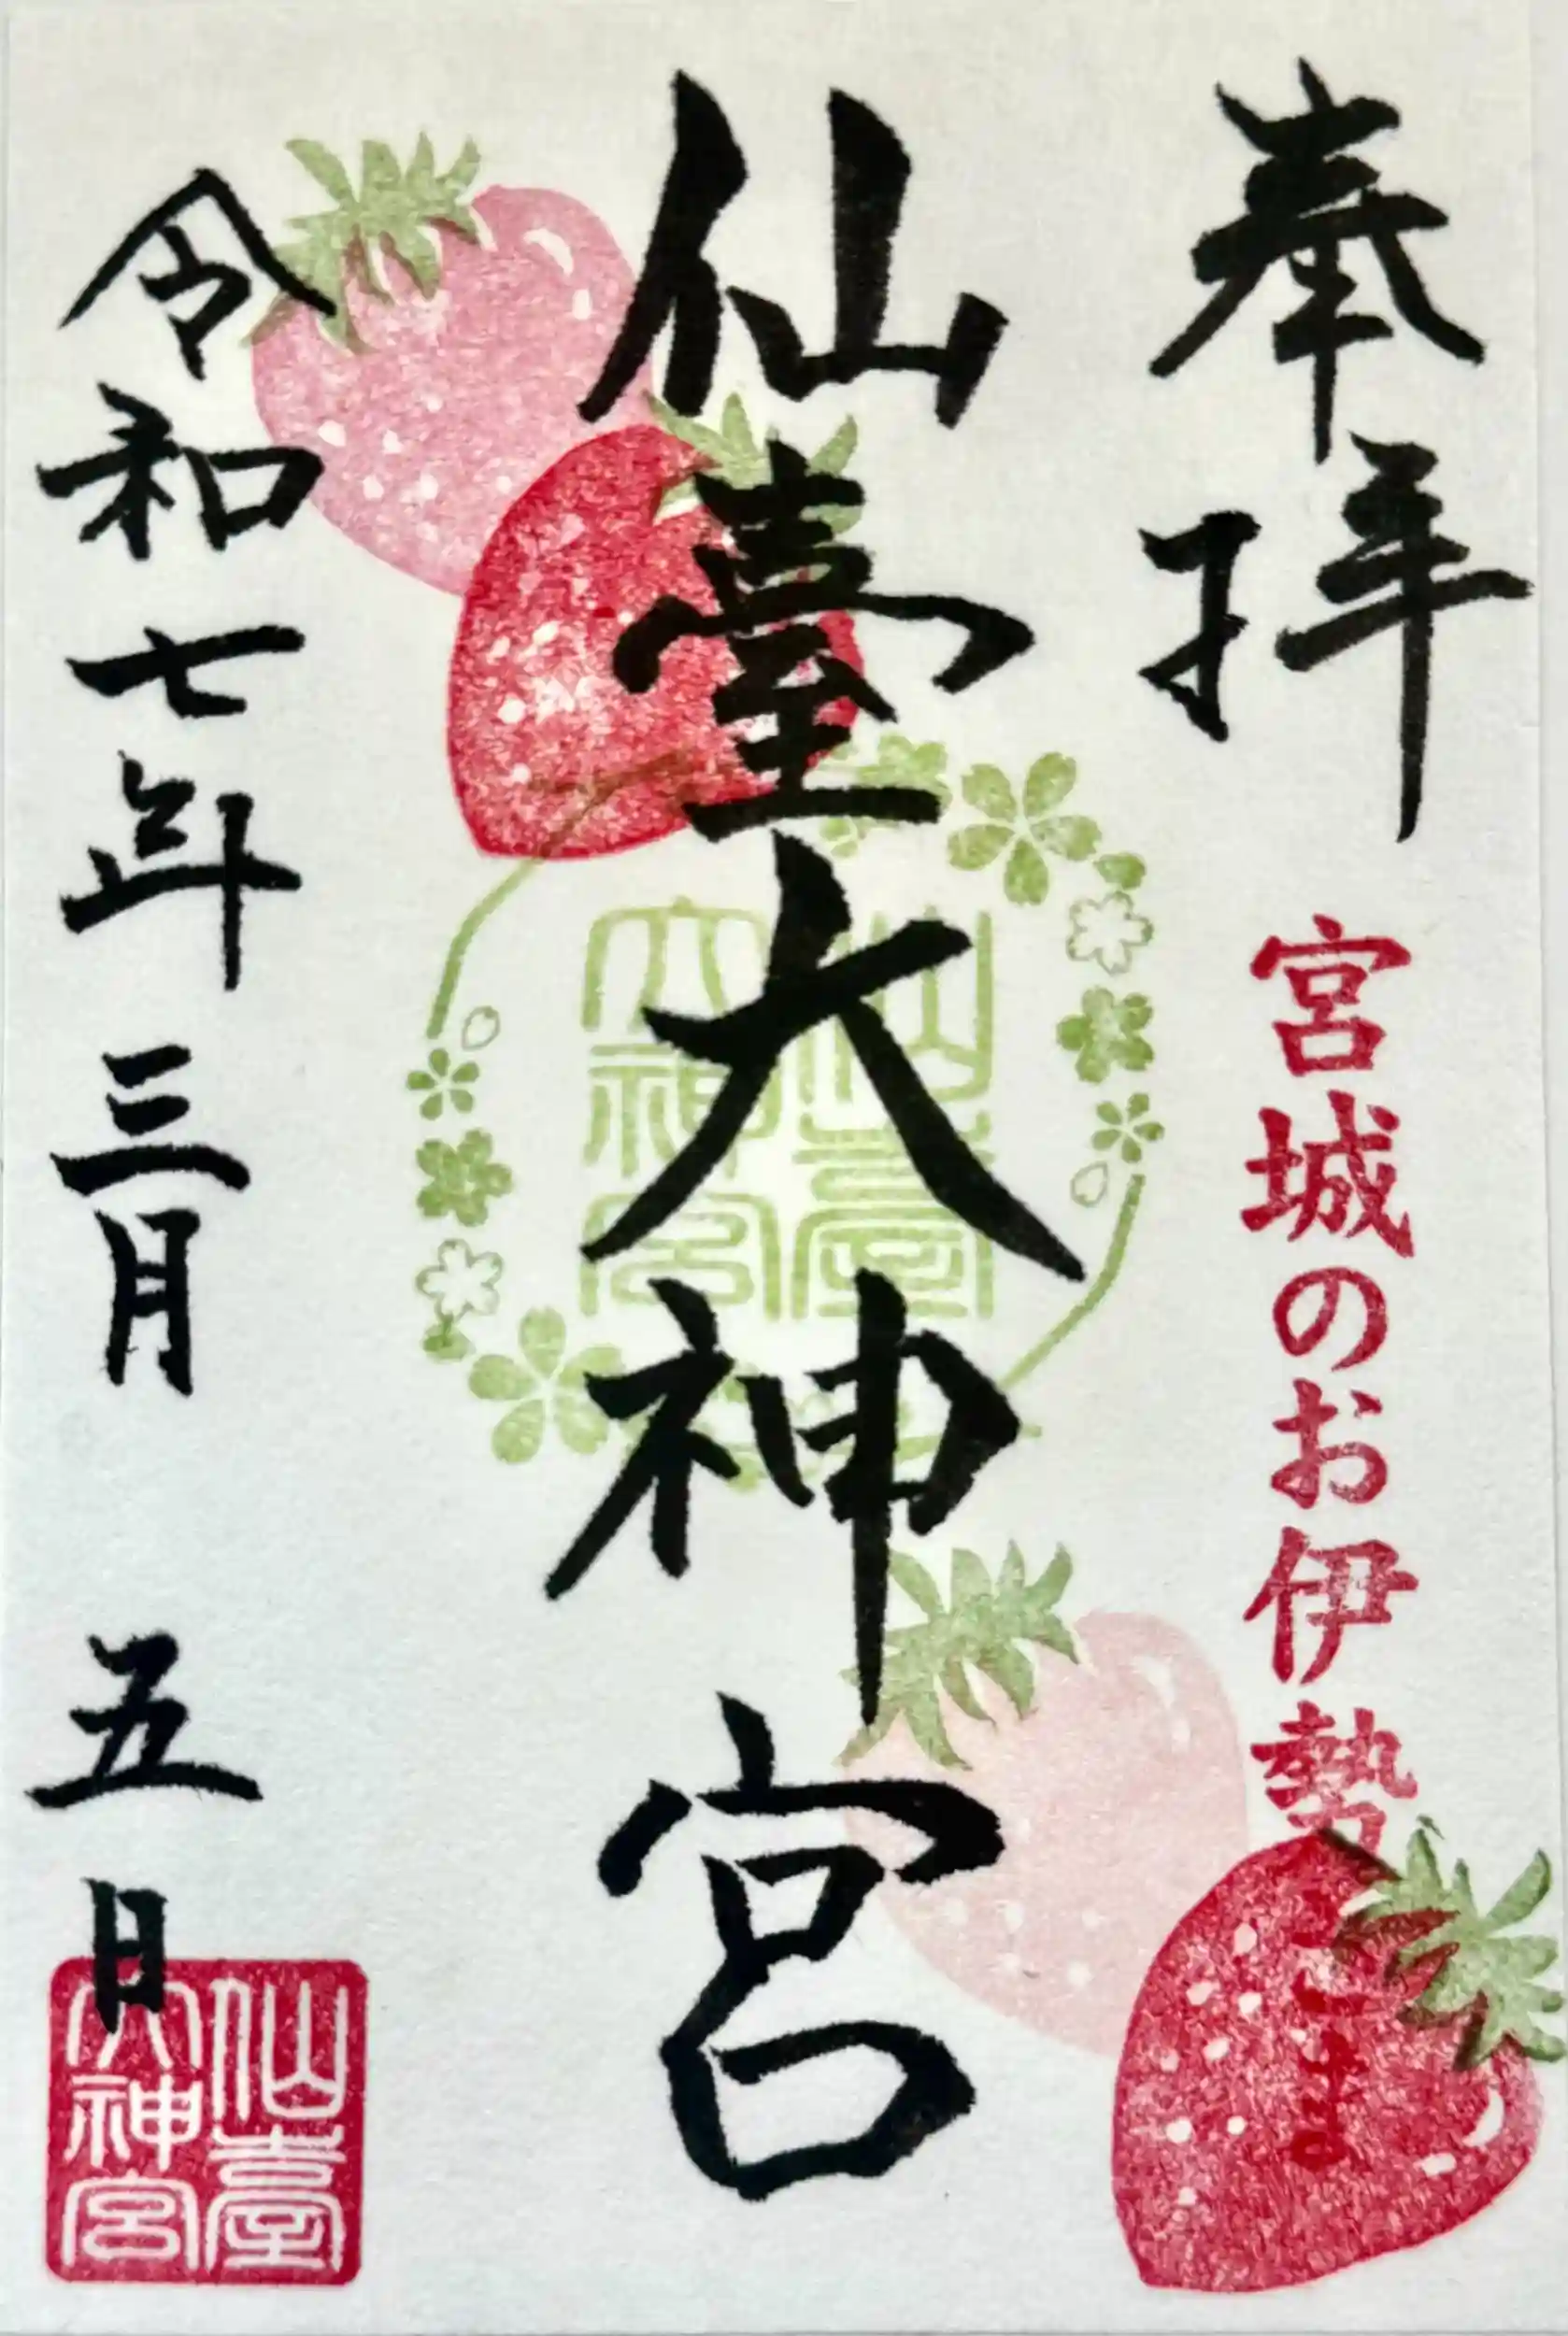 奉拝
宮城のお伊勢さま
仙臺大神宮
仙臺大神宮
令和七年三月五日
仙臺大神宮